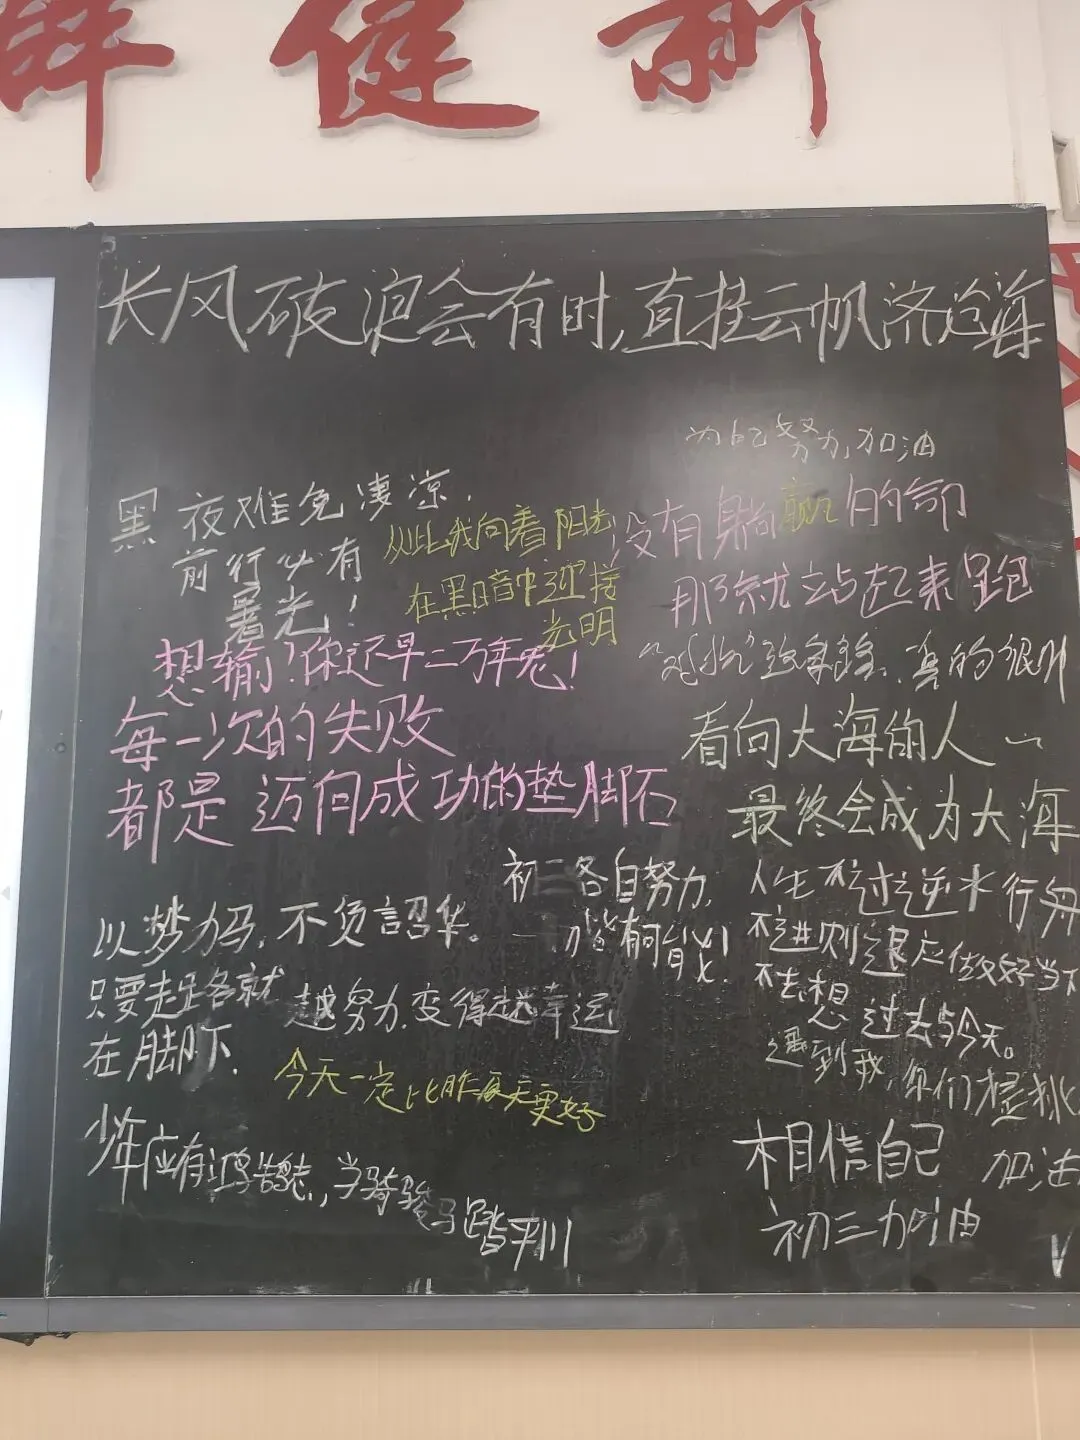 健新
长风破浪会有时,直挂云帆济沧海
为自己努力,加油
黑夜难免凄凉.
前行必有
曙光!
从此我向着阳光
在黑暗中迎接
光明
没有躺赢的命
那就站起来跑
想输?你还早二万年呢!
真的很
每一次的失败
都是迈向成功的垫脚石
看向大海的人~
最终会成为大海
初三各自努力,
一切皆有可能!
人生不过逆水行舟
不进则退应做好当下
不去想过去与今天。
遇到我,你们
以梦为马,不负韶华。
只要走路就
在脚下.
越努力.变得越幸运
今天一定比昨天更好
少年应有鸿鹄志,当骑骏马踏平川
相信自己
加油
初三加油